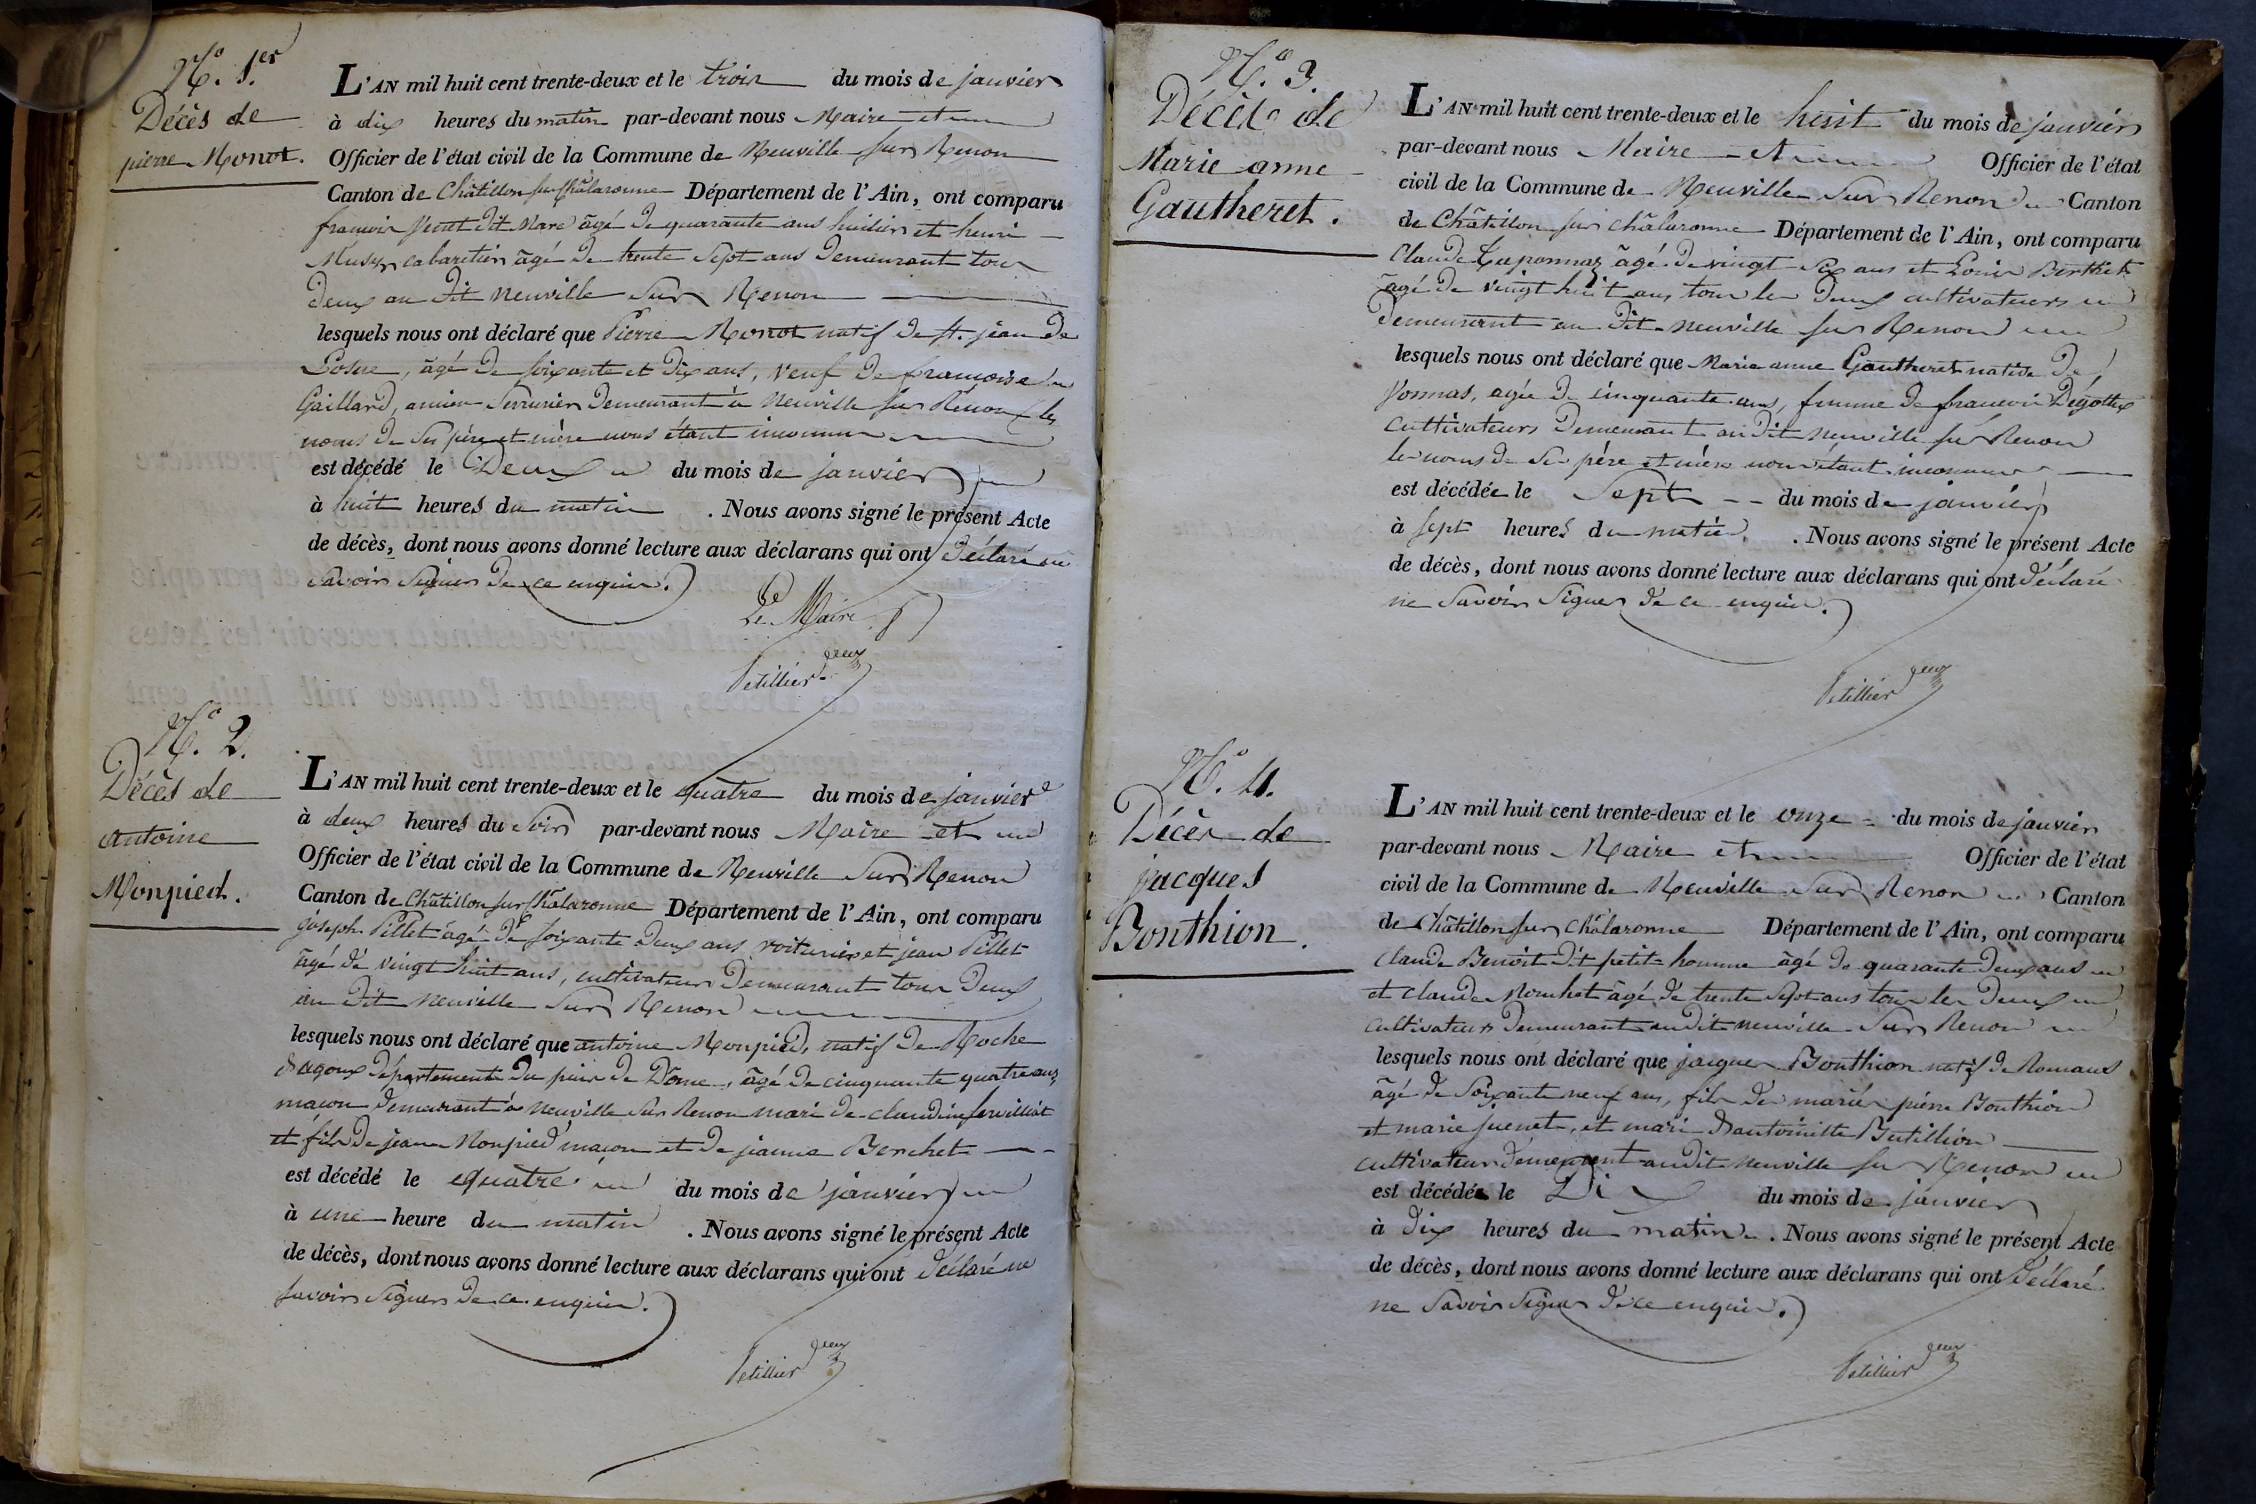 N.º 1.er
Décès de
pierre Monot.
L'AN mil huit cent trente-deux et le trois du mois de janvier
à dix heures du matin par-devant nous Maire et
Officier de l'état civil de la Commune de Neuville sur Renon
Canton de Châtillon sur Châlaronne Département de l'Ain, ont comparu
françois dit Marc âgé de quarante ans huilier et henri
cabaretier âgé de trente sept ans Demeurant tous
deux au dit neuville sur Renon
lesquels nous ont déclaré que Pierre Monot natif de st. jean de
Losne, âgé de soixante et dix ans, veuf de françoise
Gaillard, ancien serrurier Demeurant à Neuville sur Renon les
noms de ses père et mère nous étant inconnus
est décédé le Deux du mois de janvier
à huit heures du matin . Nous avons signé le présent Acte
de décès, dont nous avons donné lecture aux déclarans qui ont déclaré ne
savoir signer de ce enquis.
Le Maire
Petillier
N.º 2.
Décès de
antoine
Monpied.
L'AN mil huit cent trente-deux et le quatre du mois de janvier
à deux heures du soir par-devant nous Maire et
Officier de l'état civil de la Commune de Neuville sur Renon
Canton de Châtillon sur Châlaronne Département de l'Ain, ont comparu
joseph Pillet âgé de soixante deux ans voiturier et jean Pillet
âgé de vingt huit ans, cultivateur Demeurant tous deux
au dit neuville sur Renon
lesquels nous ont déclaré que antoine Monpied, natif de Roche
d'agoux département du puis de Dôme, âgé de cinquante quatre ans,
maçon demeurant à neuville sur Renon mari de claudine
et fils de jean Monpied maçon et de jeanne Berchet
est décédé le quatre du mois de janvier
à une heure du matin . Nous avons signé le présent Acte
de décès, dont nous avons donné lecture aux déclarans qui ont déclaré ne
savoir signer de ce enquis.
Petillier
N.º 3.
Décès de
Marie anne
Gautheret.
L'AN mil huit cent trente-deux et le huit du mois de janvier
par-devant nous Maire et Officier de l'état
civil de la Commune de Neuville sur Renon Canton
de Châtillon sur châlaronne Département de l'Ain, ont comparu
Claude âgé de vingt six ans et Louis Berthet
âgé de vingt huit ans tous les deux cultivateurs
demeurant au dit neuville sur Renon
lesquels nous ont déclaré que Marie anne Gautheret native de
Vonnas, agée de cinquante ans, femme de françois
cultivateurs Demeurant au dit neuville sur Renon
les noms de ses père et mère nous étant inconnus
est décédée le Sept du mois de janvier
à sept heures du matin . Nous avons signé le présent Acte
de décès, dont nous avons donné lecture aux déclarans qui ont déclaré
ne savoir signer de ce enquis.
Petillier
N.º 4.
Décès de
jacques
Bonthion.
L'AN mil huit cent trente-deux et le onze du mois de janvier
par-devant nous Maire et Officier de l'état
civil de la Commune de Neuville sur Renon Canton
de Châtillon sur Châlaronne Département de l'Ain, ont comparu
claude Benoit dit petit homme âgé de quarante deux ans
et claude âgé de trente sept ans tous les deux
cultivateurs Demeurant au dit neuville sur Renon
lesquels nous ont déclaré que jacques Bonthion natif de Romans
âgé de soixante neuf ans, fils de mariés pierre Bonthion
et marie juenet, et mari d'antoinette
cultivateur demeurant au dit neuville sur Renon
est décédée le Dix du mois de janvier
à dix heures du matin . Nous avons signé le présent Acte
de décès, dont nous avons donné lecture aux déclarans qui ont déclaré
ne savoir signer de ce enquis.
Petillier